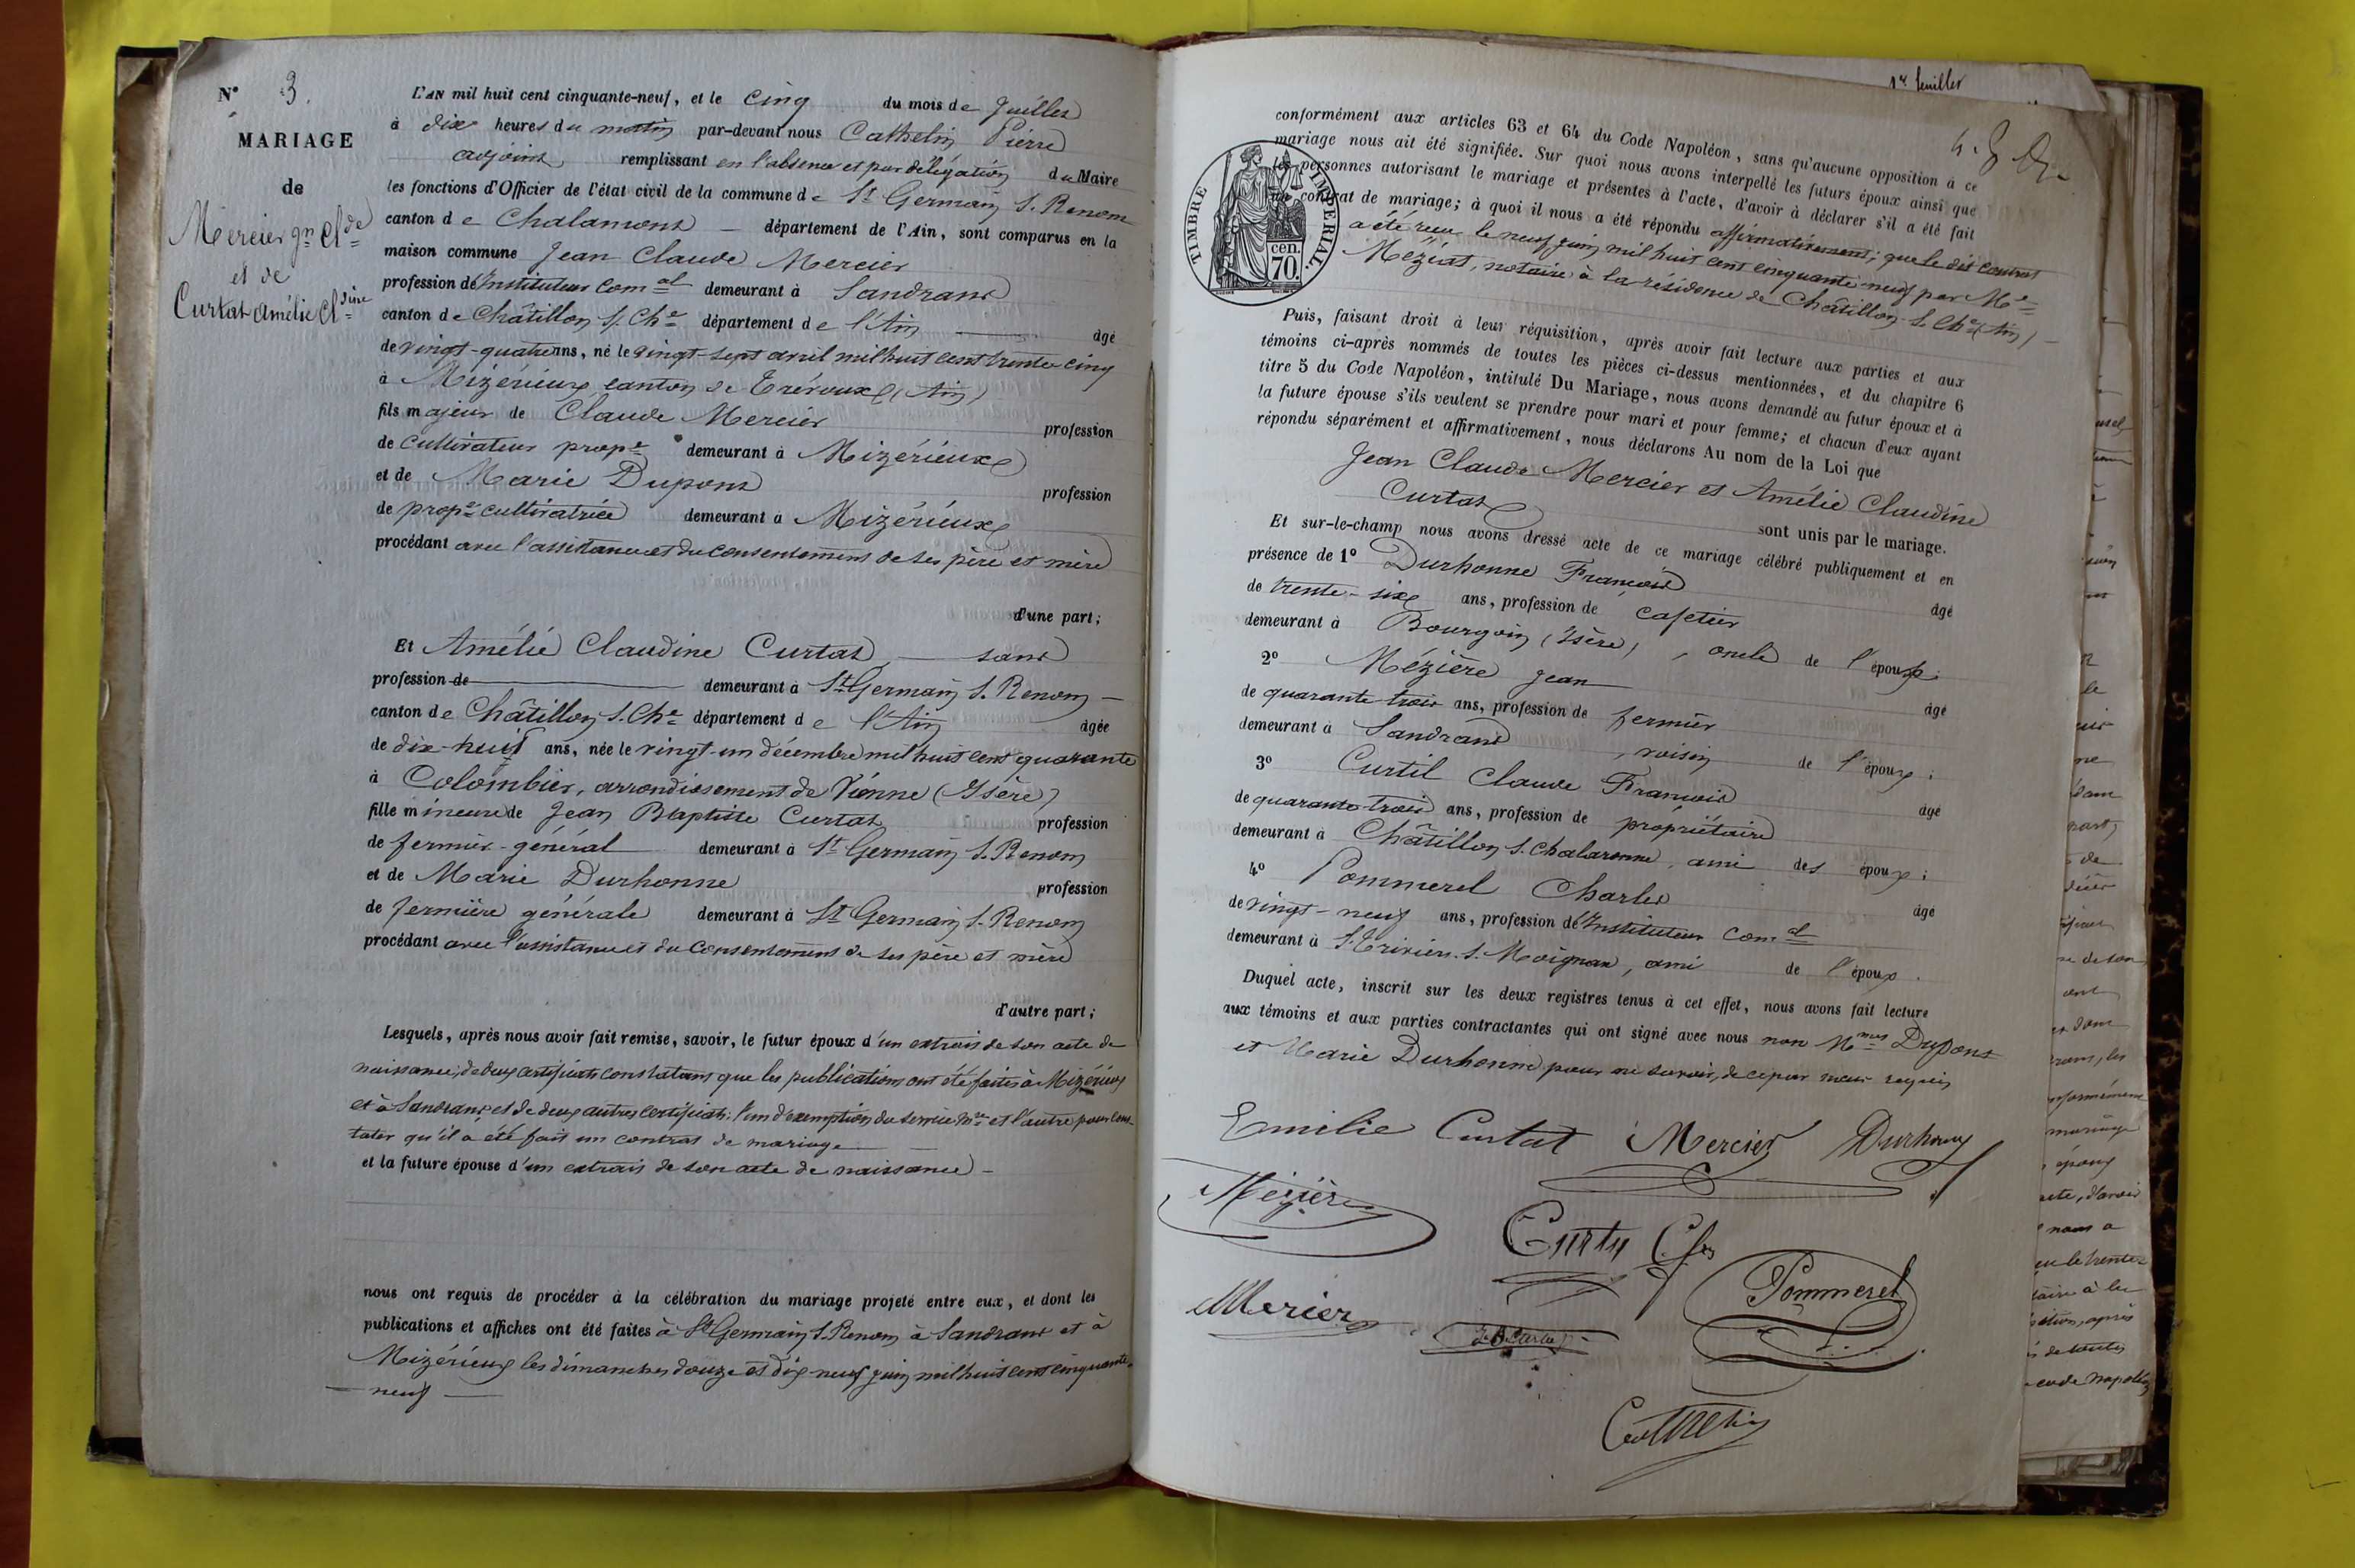 N° 3.
MARIAGE
de
Mercier Jn Clde
et de
Curtat Amélie Cldine
L'AN mil huit cent cinquante-neuf, et le cinq du mois de Juillet
à dix heures du matin par-devant nous Cathelin Pierre
adjoint remplissant en l'absence et par délégation du Maire
les fonctions d'Officier de l'état civil de la commune de St Germain S. Renom
canton de Chalamont département de l'Ain, sont comparus en la
maison commune Jean Claude Mercier
profession de Instituteur comal demeurant à Sandrans
canton de Châtillon S. Che département de l'Ain âgé
de vingt-quatre ans, né le vingt-sept avril mil huit cent trente-cinq
à Mizérieux canton de Trévoux (Ain)
fils majeur de Claude Mercier profession
de cultivateur propre demeurant à Mizérieux
et de Marie Dupont profession
de propre cultivatrice demeurant à Mizérieux
procédant avec l'assistance et du consentement de ses père et mère
d'une part;
Et Amélie Claudine Curtat sans
profession de demeurant à St Germain S. Renom
canton de Châtillon S. Che département de l'Ain âgée
de dix-huit ans, née le vingt-un décembre mil huit cent quarante
à Colombier, arrondissement de Vienne (Isère)
fille mineure de Jean Baptiste Curtat profession
de fermier-général demeurant à St Germain S. Renom
et de Marie Durhonne profession
de fermière générale demeurant à St Germain S. Renom
procédant avec l'assistance et du consentement de ses père et mère
d'autre part;
Lesquels, après nous avoir fait remise, savoir, le futur époux d'un extrait de son acte de
naissance, de deux certificats constatant que les publications ont été faites à Mizérieux
et à Sandrans et de deux autres certificats: l'un d'exemption du service mre et l'autre pour cons-
tater qu'il a été fait un contrat de mariage
et la future épouse d'un extrait de son acte de naissance
nous ont requis de procéder à la célébration du mariage projeté entre eux, et dont les
publications et affiches ont été faites à St Germain S. Renom à Sandrans et à
Mizérieux les dimanches douze et dix-neuf juin mil huit cent cinquante-
neuf
1er feuillet
conformément aux articles 63 et 64 du Code Napoléon, sans qu'aucune opposition à ce
mariage nous ait été signifiée. Sur quoi nous avons interpellé les futurs époux ainsi que
les personnes autorisant le mariage et présentes à l'acte, d'avoir à déclarer s'il a été fait
un contrat de mariage; à quoi il nous a été répondu affirmativement; que le dit contrat
a été reçu le neuf juin mil huit cent cinquante neuf par Me
Méziat, notaire à la résidence de Châtillon S. Che (Ain)
TIMBRE IMPERIAL.
cen.
70.
Puis, faisant droit à leur réquisition, après avoir fait lecture aux parties et aux
témoins ci-après nommés de toutes les pièces ci-dessus mentionnées, et du chapitre 6
titre 5 du Code Napoléon, intitulé Du Mariage, nous avons demandé au futur époux et à
la future épouse s'ils veulent se prendre pour mari et pour femme; et chacun d'eux ayant
répondu séparément et affirmativement, nous déclarons Au nom de la Loi que
Jean Claude Mercier et Amélie Claudine
Curtat sont unis par le mariage.
Et sur-le-champ nous avons dressé acte de ce mariage célébré publiquement et en
présence de 1° Durhonne François âgé
de trente-six ans, profession de cafetier
demeurant à Bourgoin (Isère), oncle de l'épouse;
2° Mézière Jean âgé
de quarante trois ans, profession de fermier
demeurant à Sandrans, voisin de l'époux;
3° Curtil Claude François âgé
de quarante-trois ans, profession de propriétaire
demeurant à Châtillon S. Chalaronne, ami des époux;
4° Pommerel Charles âgé
de vingt-neuf ans, profession de Instituteur comal
demeurant à S. Trivier S. Moignans, ami de l'époux.
Duquel acte, inscrit sur les deux registres tenus à cet effet, nous avons fait lecture
aux témoins et aux parties contractantes qui ont signé avec nous non Mmes Dupont
et Marie Durhonne pour ne savoir, de ce par nous requis
Emilie Curtat Mercier Durhonne
Mézière
Pommerel
Mercier
J B Curtat
Cathelin